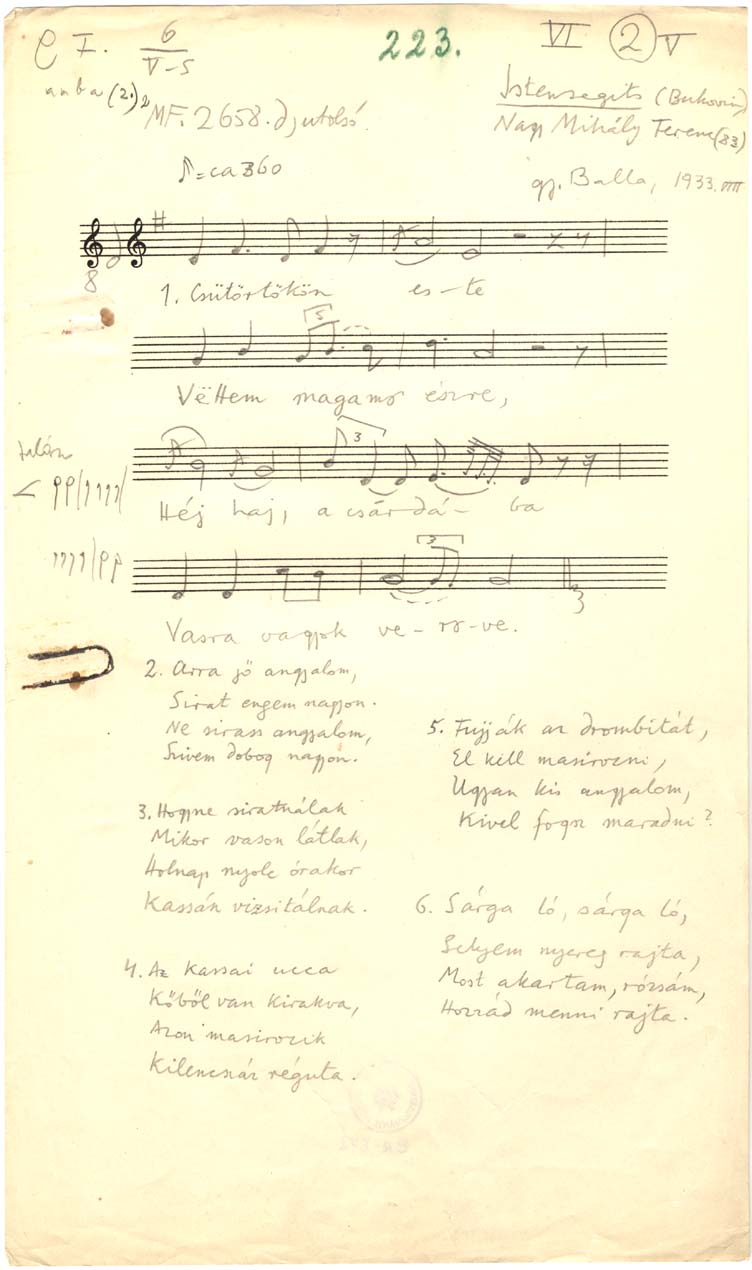 C I. 6/V-5
223.
VI 2 V
a n b a (2.) 2
MF. 2658. d, utolsó
Istensegits (Bukovin)
Nagy Mihály Ferenc (83)
♪=ca 360
gy. Balla, 1933. VIII
8
1. Csütörtökön es-te
5
Vëttem magamo észre,
talán
3
Héj haj, a csárdá- ba
3
Vasra vagyok ve-rö-ve.
2. Arra jő angyalom,
Sirat engem nagyon.
Ne sirass angyalom,
Szivem dobog nagyon.
3. Hogyne siratnálak
Mikor vason látlak,
Holnap nyolc órakor
Kassán vizsitálnak.
4. Az kassai ucca
Kőből van kirakva,
Azon masirozik
Kilencsáz réguta.
5. Fujják az drombitát,
El këll masirozni,
Ugyan kis angyalom,
Kivel fogsz maradni?
6. Sárga ló, sárga ló,
Selyem nyereg rajta,
Most akartam, rózsám,
Hozzád menni rajta.